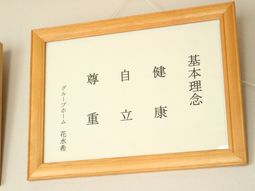 基本理念
健康
自立
尊重
グループホーム 花水希